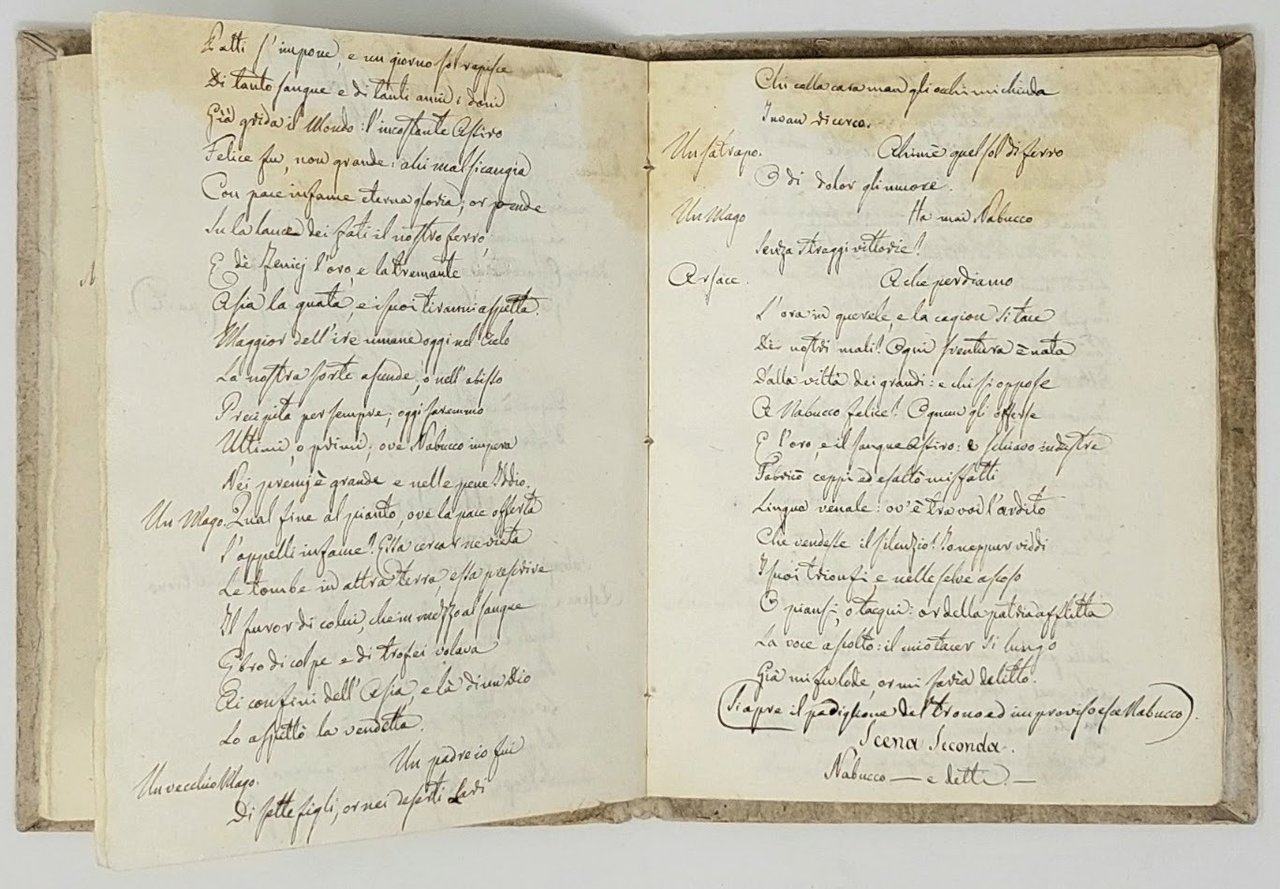 Patti s'impone, e un giorno sol rapisce
Di tanto sangue e di tanti anni i doni
Già grida il Mondo: l'incostante Assiro
Felice fu, non grande: ahi mal si cangia
Con pace infame eterna gloria; or pende
Su la lance dei Fati il nostro ferro,
E de' Fenicj l'oro, e la tremante
Asia la guata, e i suoi tiranni aspetta.
Maggior dell'ire umane oggi nel Cielo
La nostra sorte ascende, o nell'abisso
Precipita per sempre; oggi saremmo
Ultimi, o primi: ove Nabucco impera
Nei premj è grande e nelle pene Iddio.
Un Mago. Qual fine al pianto, ove la pace offerta
S'appelli infame? Essa cercar ne vieta
Le tombe in altra terra, essa prescrive
Il furor di colui, che in mezzo al sangue
Ebro di colpe e di trofei volava
Ai confini dell'Asia, e là di un Dio
Lo aspettò la vendetta.
Un vecchio Mago. Un padre io fui
Di sette figli, or nei deserti Lari
Chi colla cara man gli occhi mi chiuda
Invan ricerco.
Un satrapo. Ahimè quel sol di ferro
O di dolor gli muore.
Un Mago Ha mai Nabucco
Senza straggi vittorie?
Arsace. A che perdiamo
L'ora in querele, e la cagion si tace
Dei nostri mali? Ogni sventura è nata
Dalla viltà dei grandi: e chi si oppose
A Nabucco felice? Ognun gli offerse
E l'oro, e il sangue Assiro: e schiavo industre
Fabricò ceppi ed esaltò misfatti
Lingua venale: ov'è tra voi l'ardito
Che vendesse il silenzio? Io neppur viddi
I suoi trionfi e nelle selve ascoso
O piansi, o tacqui: or della patria afflitta
La voce ascolto: il mio tacer sì lungo
Già mi fu lode, or mi saria delitto.
(Si apre il padiglione del trono ed improviso esce Nabucco).
Scena Seconda.
Nabucco — e detti —